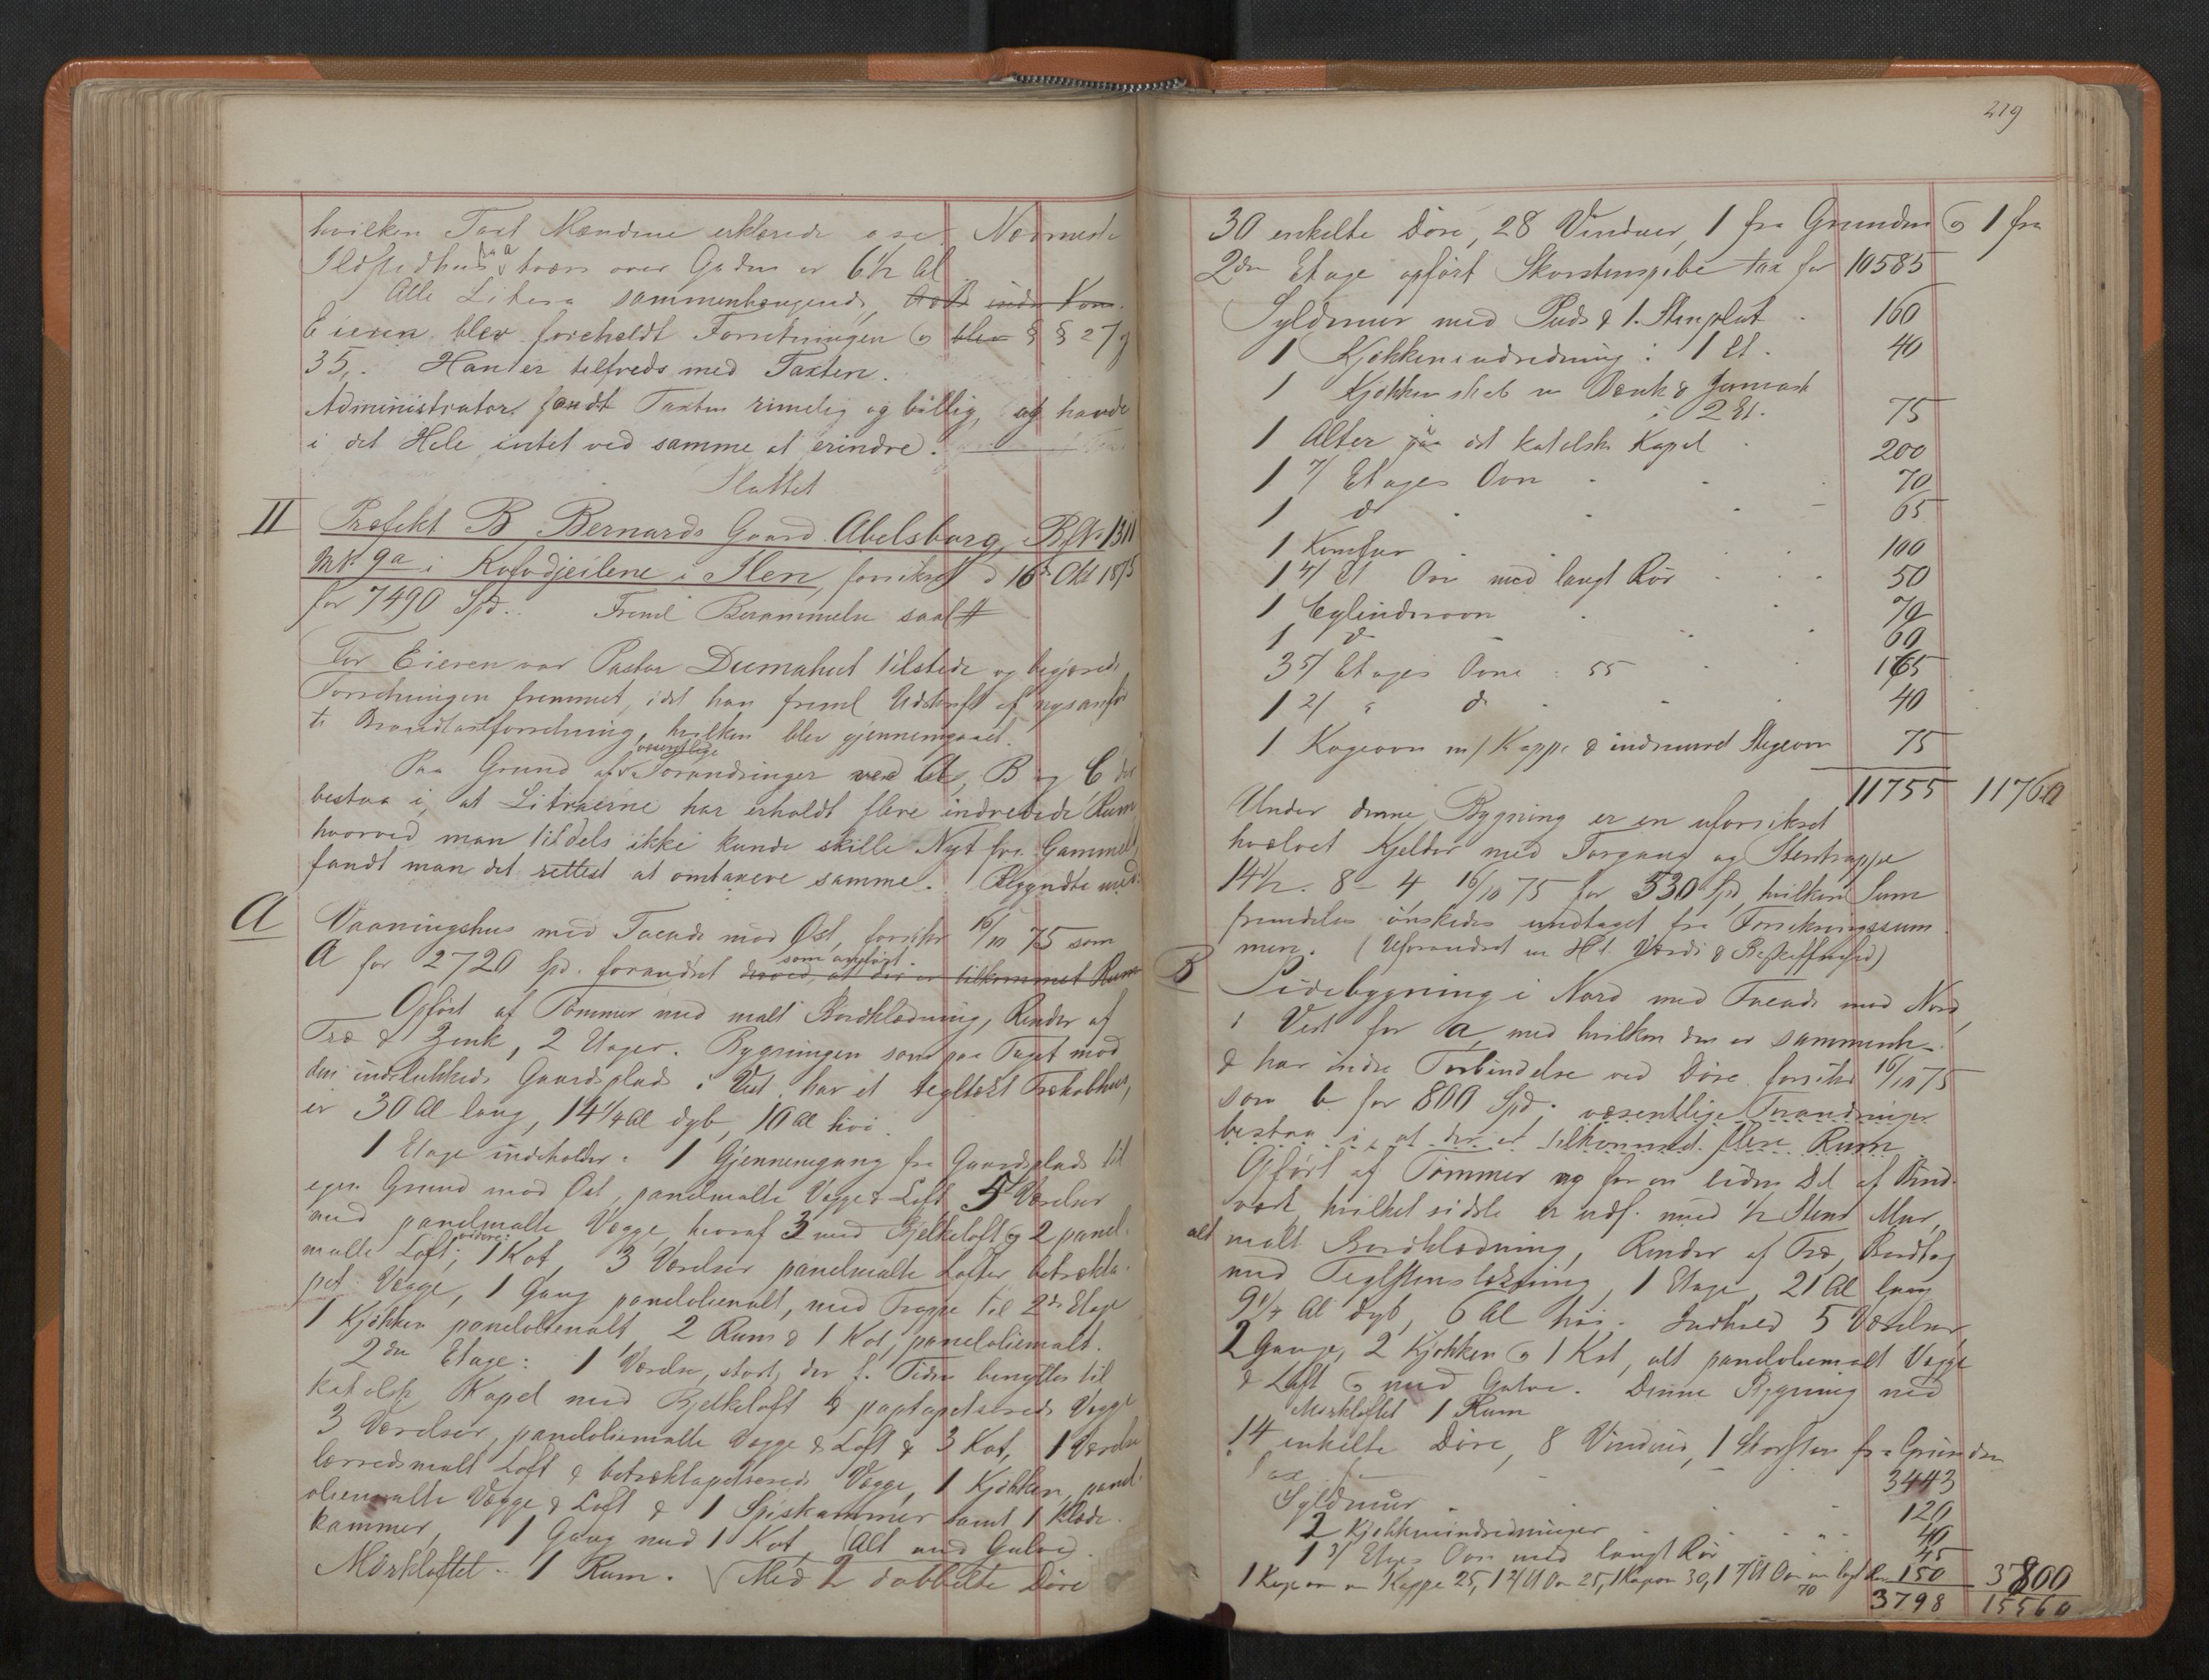 hvilken Taxt Mændene erklærede o.s.v. Nærmeste
Ildstedhus tværs over Gaden er 6½ Al
Alle Litera sammenhængende,
Eieren blev foreholdt Forretningen og blev § § 27 og
35. Han er tilfreds med Taxten.
Administrator fandt Taxten rimelig og billig, og havde
i det Hele intet ved samme at erindre.
Sluttet
II Præfekt B. Bernards Gaard Abelsborg, B.No 1311
Mk 9a i Kofodjeilene i Ilen, forsikret d 16de Okt 1875
for 7490 Spd. Freml Berammelse saal #
For Eieren var Pastor Dumahut tilstede og begjærede
Forretningen fremmet, idet han freml Udskrift af nysanfør
te Brandtaxtforretning, hvilken blev gjennemgaaet.
Paa Grund af væsentlige Forandringer ved A, B og C der
bestaa i, at Litraerne har erholdt flere indredede Rum,
hvorved man tildels ikke kunde skille Nyt fra Gammelt,
fandt man det rettest at omtaxere samme. Begyndte med:
A Vaaningshus med Facade mod Øst, forsikr 16/10 75 som
A for 2720 Spd. forandret som anført. derved, at der er tilkommet Rum
Opført af Tømmer med malt Bordklædning, Render af
Træ & Zink, 2 Etager. Bygningen som paa Taget mod
den indelukkede Gaardsplads i Vest har et tegltækt Trækobhus,
er 30 Al lang, 14¼ Al dyb, 10 Al høi.
1 Etage indeholder: 1 Gjennemgang fra Gaardsplads til
egen Grund mod Øst, panelmalte Vægge & Loft, 5 Værelser
med panelmalte Vægge, hvoraf 3 med Bjelkeloft og 2 panel-
malte Loft; videre: 1 Kot, 3 Værelser panelmalte Lofter, betrækta-
pet Vægge, 1 Gang paneloliemalt, med Trappe til 2de Etage
1 Kjøkken paneloliemalt, 2 Rum & 1 Kot, paneloliemalt.
2den Etage: 1 Værelse, stort, der f. Tiden benyttes til
katolsk Kapel med Bjelkeloft & paptapetserede Vægge
3 Værelser, paneloliemalte Vægge & Loft & 3 Kot, 1 Værelse
lærredsmalt Loft & betræktapetserede Vægge, 1 Kjøkken, panel-
oliemalte Vægge & Loft & 1 Spiskammer samt 1 Klæde-
kammer, 1 Gang med 1 Kot, Alt med Gulve.
Mørkloftet: 1 Rum. Med 2 dobbelte Døre
219
30 enkelte Døre, 28 Vinduer, 1 fra Grunden og 1 fra
2den Etage opført Skorstenspibe tax for 10585
Syldmur med Puds & 1. Stenplat 160
1 Kjøkkenindredning i 1 Et. 40
1 Kjøkkenskab m Bænk &
i 2 Et. 75
1 Alter paa det katolske Kapel 200
1 7/ Etages Ovn 70
1 do 65
1 Komfur 100
1 4/ Et Ovn med langt Rør 50
1 Cylinderovn 70
1 do 60
3 5/ Etages Ovne : 55 165
1 2/ " do 40
1 Kogeovn m/ Kappe & indmuret Stegeovn 75
11755 11760
Under denne Bygning er en uforsikret
hvælvet Kjelder med Forgang og Stentrappe
14½. 8 - 4 16/10 75 for 530 Spd, hvilken Sum
fremdeles ønskedes undtaget fra Forsikringssum
men. (Uforandret m H t. Værdi & Beskaffenhed)
B Sidebygning i Nord med Facade mod Nord,
i Vest for A, med hvilken den er sammenh.
& har indre Forbindelse ved Døre. forsikr 16/10 75
som b for 800 Spd: væsentlige Forandringer
bestaa i, at der er tilkommet flere Rum.
Opført af Tømmer og for en liden Del af Bind-
værk, hvilket sidste er udf. med ½ Stens Mur,
alt malt Bordklædning, Render af Træ, Bordtag
med Teglstenstækning, 1 Etage, 21 Al lang
9¼ Al dyb, 6 Al høi. Indhold 5 Værelser
2 Gange, 2 Kjøkken og 1 Kot, alt paneloliemalt Vægge
& Loft og med Gulve. Denne Bygning med
Mørkloftet 1 Rum
14 enkelte Døre, 8 Vinduer, 1 Skorsten fra Grunden
Tax for 3443
Syldmur 120
2 Kjøkkenindredninger 40
1 3/ Etages Ovn med langt Rør 45
1 Kogeovn m Kappe 25, 1 2/ Et Ovn 25, 1 Kogeovn 30, 1 7/ Et Ovn m lagt Rør 70 150 3800
3798 15560